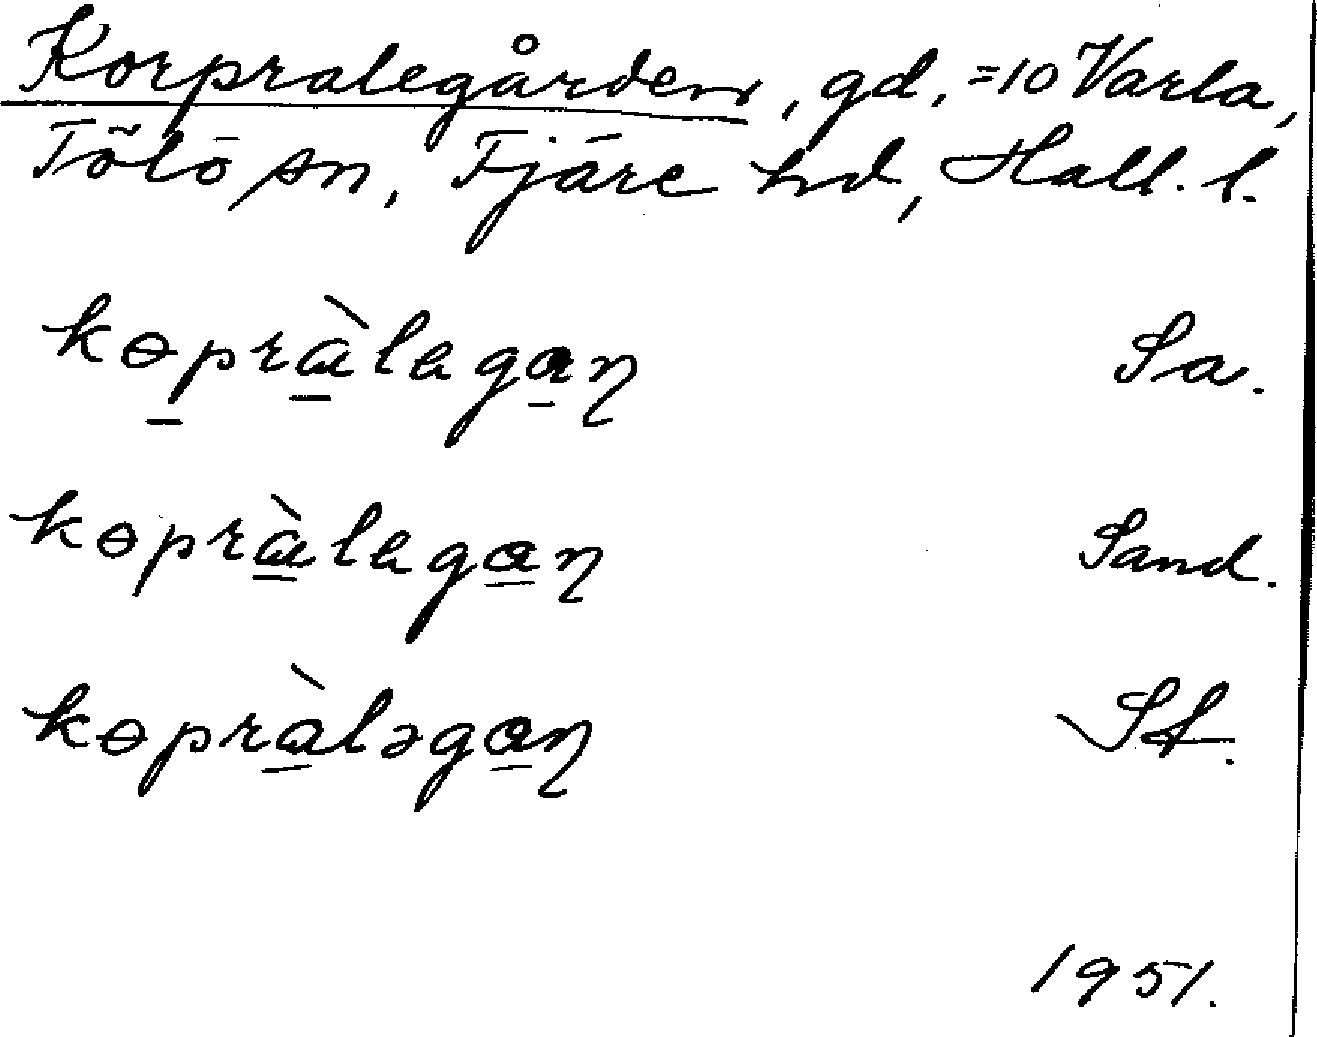 Korpralegården, gd, =10 Varla,
Tölö sn, Fjäre hd, Hall. l.
kɵprɑ̀legɑn̡ Sa.
kɵprɑ̀legɑn̡ Sand.
kɵprɑ̀ləgɑn̡ St.
1951.